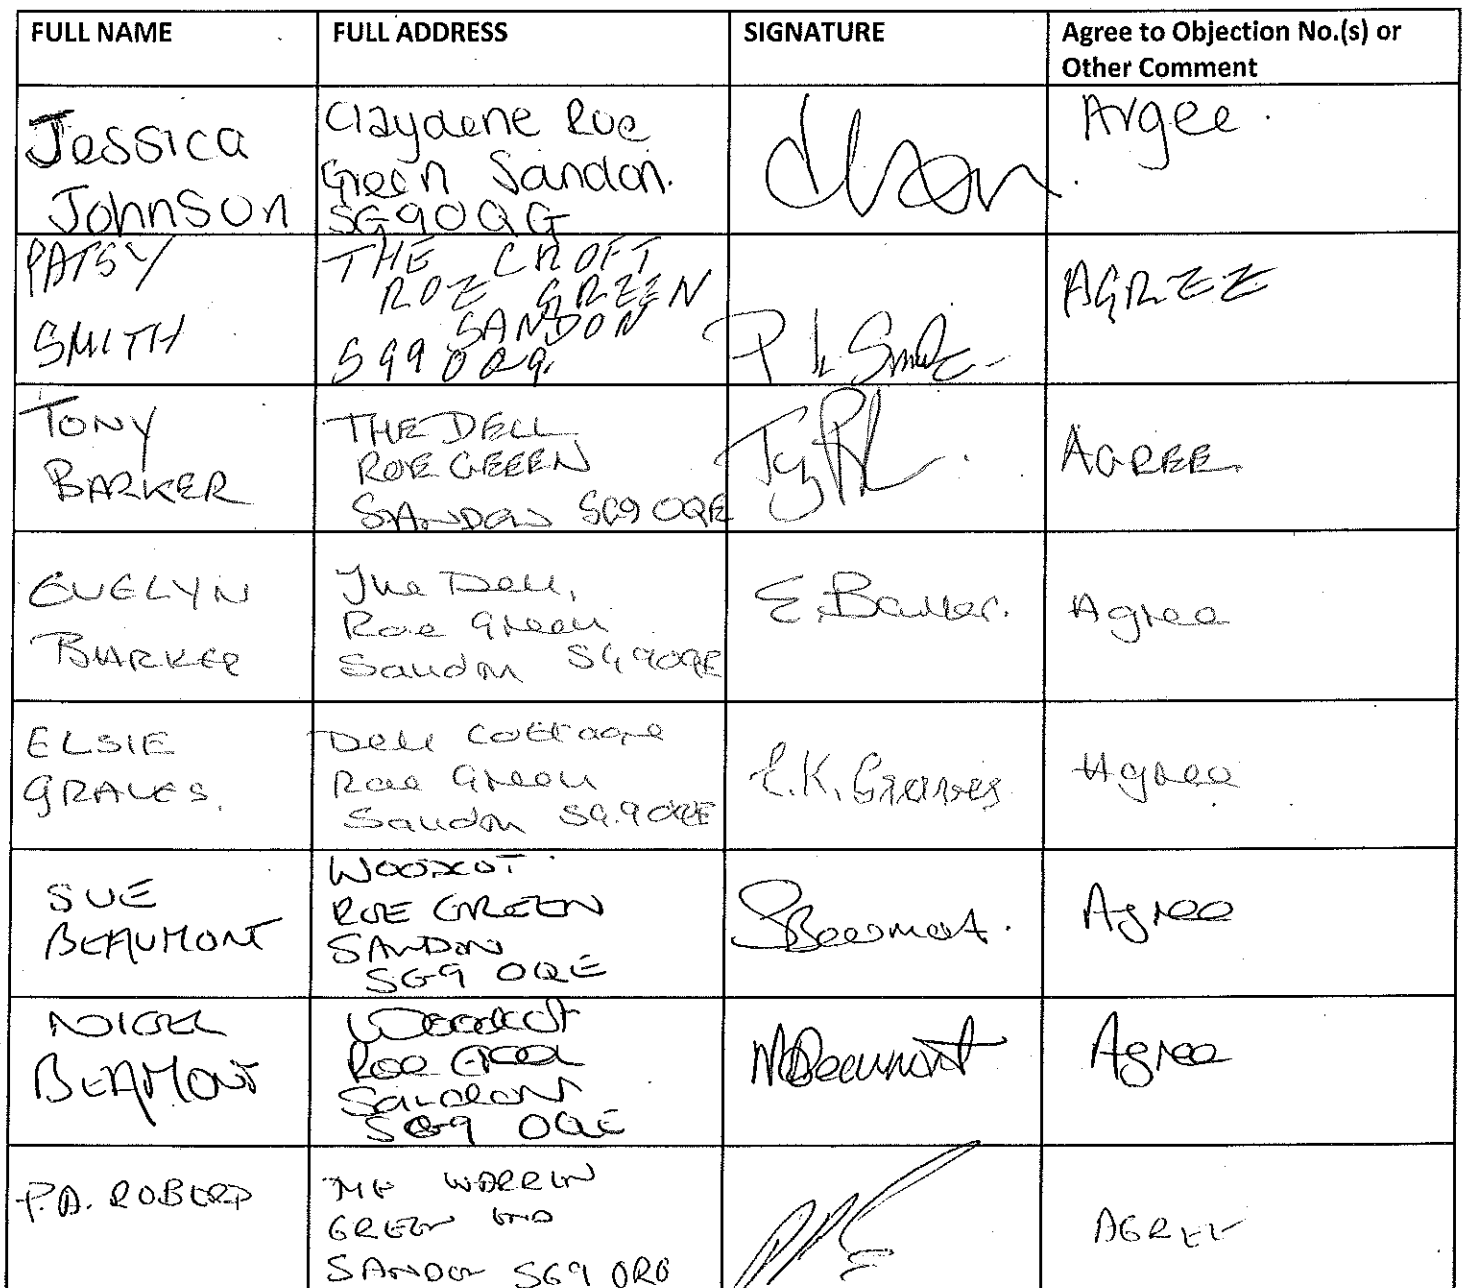 FULL NAME
FULL ADDRESS
SIGNATURE
Agree to Objection No.(s) or
Other Comment
Jessica
Johnson
Claydene Roe
Green Sandon.
SG90QG
Argee.
PATSY
SMITH
THE CROFT
ROE GREEN
SANDON
SG9 0RQ.
P L Smith
AGREE
TONY
BARKER
THE DELL
ROE GEEEN
SANDON SG9 0QE
AGREE
EVELYN
BARKER
The Dell,
Roe Green
Sandon SG9 0QE
E. Barker.
Agree
ELSIE
GRAVES.
Dell Cottage
Roe Green
Sandon SG.9 0QE
E.K. Graves
Agree
SUE
BEAUMONT
WOODCOT
ROE GREEN
SANDON
SG9 0QE
SBeaumont.
Agree
NIGEL
BEAMONT
Woodcot
Roe Green
Sandon
SG9 0QE
NBeaumont
Agree
P.A. ROBERP
THE WARREN
GREEN END
SANDON SG9 0RG
AGREE